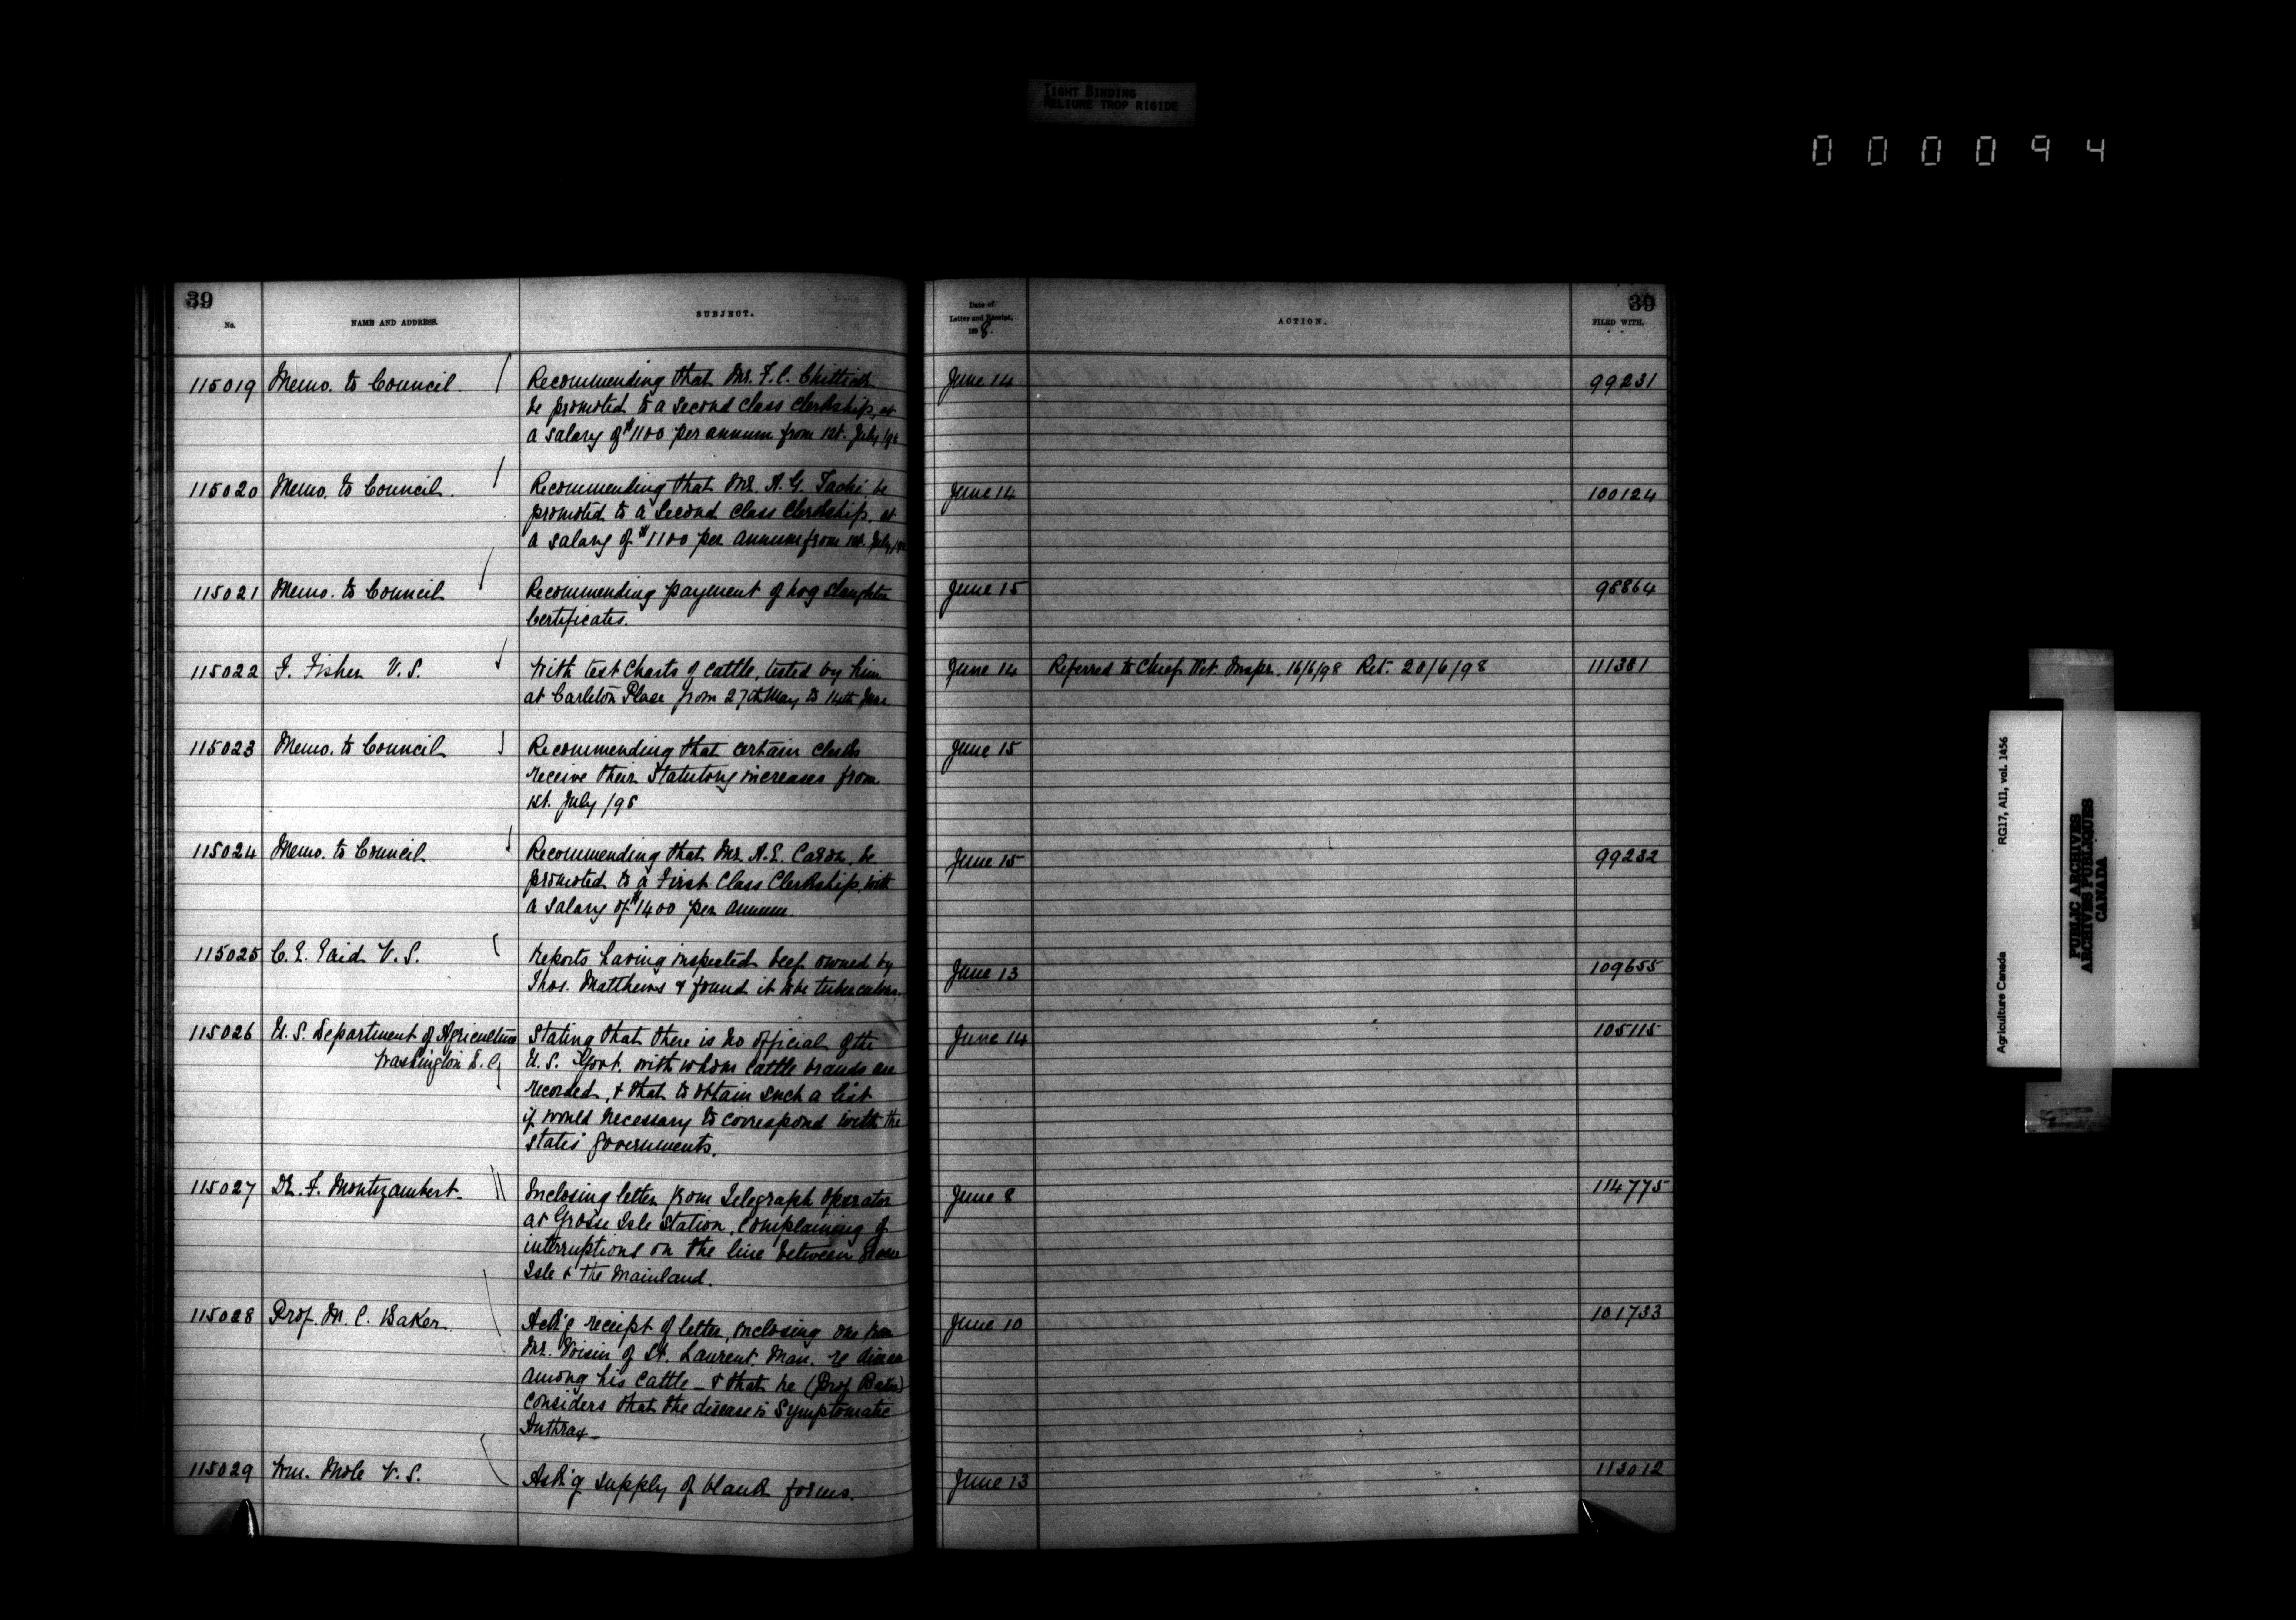 TIGHT BINDING
RELIURE TROP RIGIDE
000094
39
No.
NAME AND ADDRESS.
SUBJECT.
Date of
Letter and Receipt,
1898.
ACTION.
39
FILED WITH.
115019 Memo. to Council. Recommending that Mr. F. C. Chittick June 14 99231
be promoted to a second class clerkship, at
a salary of $1100 per annum from 1st. July /98
115020 Memo. to Council. Recommending that Mr. A. G. Taché, be June 14 100124
promoted to a second class clerkship, at
a salary of $1100 per annum from 1st. July /98
115021 Memo. to Council Recommending payment of hog slaughter June 15 98864
Certificates.
115022 F. Fisher V.S. With test charts of cattle, tested by him June 14 Referred to Chief Vet. Inspr. 16/6/98 Ret. 20/6/98 111381
at Carleton Place from 27th May to 14th June
115023 Memo. to Council Recommending that certain clerks June 15
receive their Statutory increases from
1st. July /98
115024 Memo. to Council Recommending that Mr. A. E. Caron, be June 15 99232
promoted to a First Class Clerkship, with
a salary of $1400 per annum.
115025 C. E. V.S. Reports having inspected beef owned by June 13 109655
Thos. Matthews & found it to be tuberculous.
115026 U.S. Department of Agriculture Stating that there is no official of the June 14 105115
Washington D.C. U.S. Govt. with whom cattle brands are
recorded, & that to obtain such a list
it would necessary to correspond with the
states governments.
115027 Dr. F. Montizambert. Inclosing letter from Telegraph Operator June 8 114775
at Grosse Isle Station, complaining of
interruptions on the line between Grosse
Isle & the mainland.
115028 Prof. M. C. Baker Ack'g receipt of letter, inclosing one from June 10 101733
Mr. Voisin of St. Laurent Man. re disease
among his cattle - & that he (Prof. Baker)
considers that the disease is Symptomatic
Anthrax -
115029 Wm. Mole V.S. Ask'g supply of blank forms. June 13 113012
Agriculture Canada RG17, AII, vol. 1456
PUBLIC ARCHIVES
ARCHIVES PUBLIQUES
CANADA